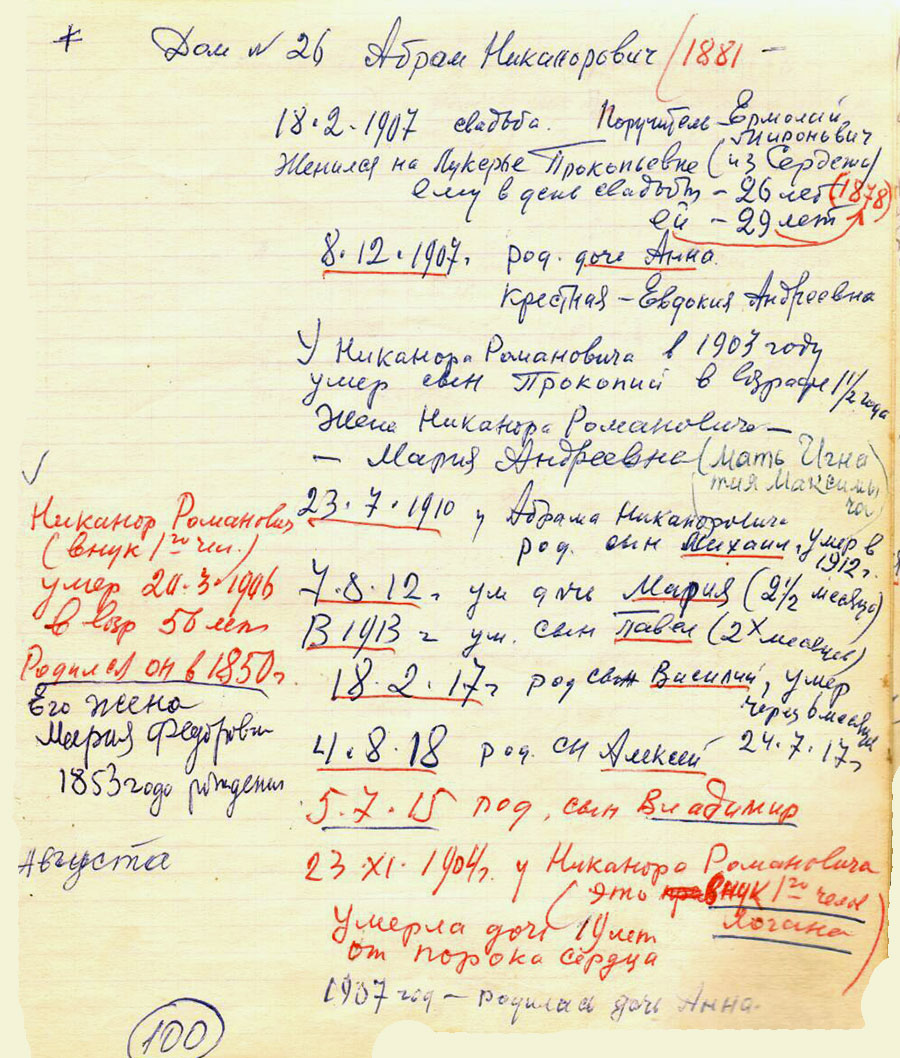 Дом № 26 Абрам Никанорович (1881 -
18.2.1907 свадьба. Поручитель Ермолай
Миронович
Женился на Лукерье Прокопьевне (из Сердежи)
ему в день свадьбы - 26 лет (1878)
ей - 29 лет
8.12.1907г. род. дочь Анна.
Крестная - Евдокия Андреевна
У Никанора Романовича в 1903 году
умер сын Прокопий в возрасте 1 1/2 года
Жена Никанора Романовича -
- Мария Андреевна (мать Игна
тия Максимы
ча)
23.7.1910 у Абрама Никаноровича
род. сын Михаил, умер в
1912г.
7.8.12г ум дочь Мария (2 1/2 месяца)
В 1913 г ум. сын Павел (2х месяцев)
18.2.17г род сын Василий, умер
через 6 месяцев
24.7.17г
4.8.18 род. сн Алексей
5.7.15 род. сын Владимир
23.XI.1904г. у Никанора Романовича
(это внук 1го чела
Логана)
Умерла дочь 19 лет
от порока сердца
1907 год - родилась дочь Анна.
Никанор Романович
(внук 1го чел.)
умер 20.3.1906
в возр 56 лет
Родился он в 1850г.
Его жена
Мария Федоровн
1853 года рождения
Августа
100